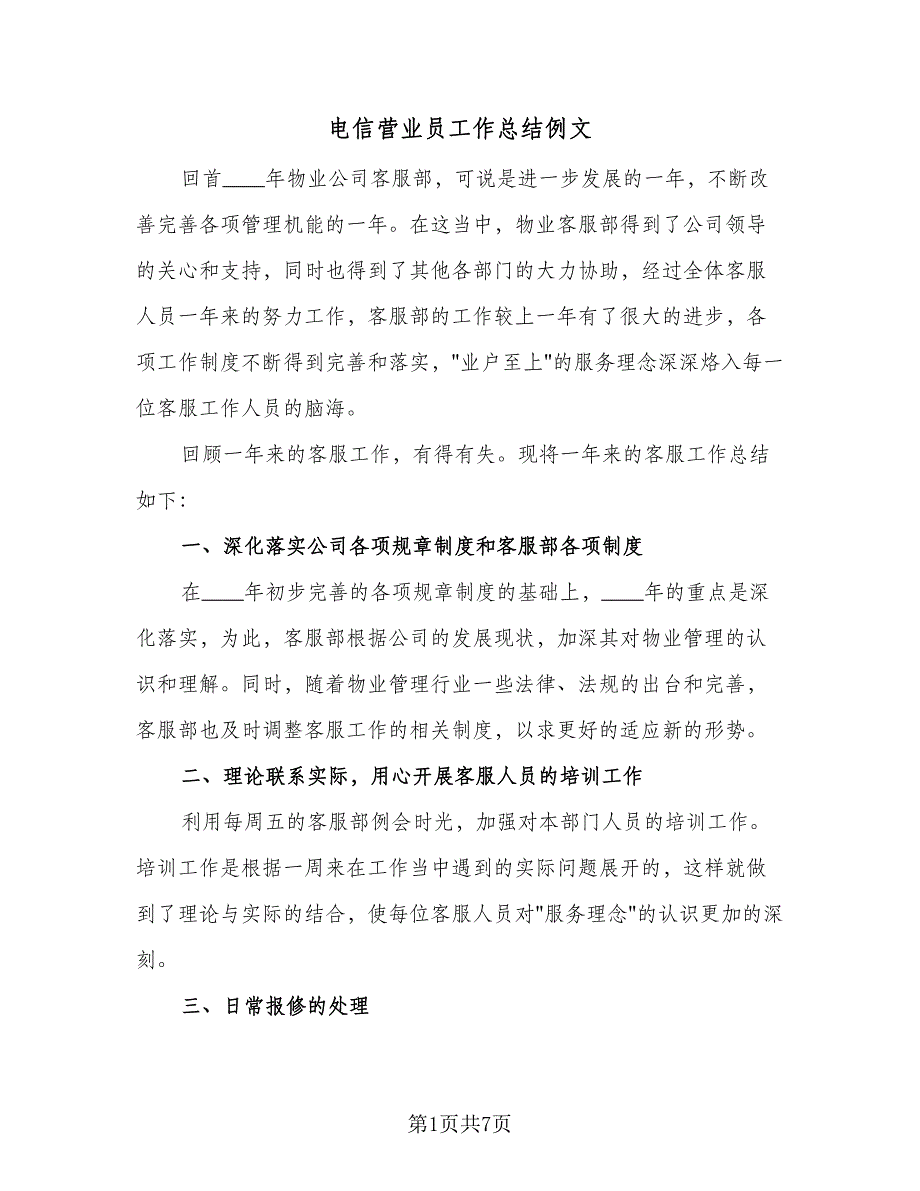 电信营业员工作总结例文
回首____年物业公司客服部，可说是进一步发展的一年，不断改
善完善各项管理机能的一年。在这当中，物业客服部得到了公司领导
的关心和支持，同时也得到了其他各部门的大力协助，经过全体客服
人员一年来的努力工作，客服部的工作较上一年有了很大的进步，各
项工作制度不断得到完善和落实，"业户至上"的服务理念深深烙入每一
位客服工作人员的脑海。
回顾一年来的客服工作，有得有失。现将一年来的客服工作总结
如下：
一、深化落实公司各项规章制度和客服部各项制度
在____年初步完善的各项规章制度的基础上，____年的重点是深
化落实，为此，客服部根据公司的发展现状，加深其对物业管理的认
识和理解。同时，随着物业管理行业一些法律、法规的出台和完善，
客服部也及时调整客服工作的相关制度，以求更好的适应新的形势。
二、理论联系实际，用心开展客服人员的培训工作
利用每周五的客服部例会时光，加强对本部门人员的培训工作。
培训工作是根据一周来在工作当中遇到的实际问题展开的，这样就做
到了理论与实际的结合，使每位客服人员对"服务理念"的认识更加的深
刻。
三、日常报修的处理
第1页共7页